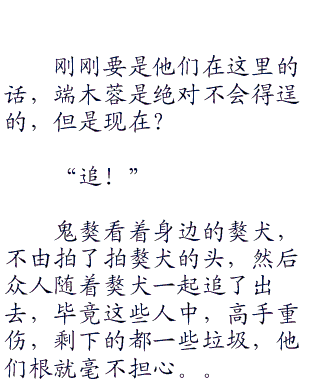 刚刚要是他们在这里的
话，端木蓉是绝对不会得逞
的，但是现在？
“追！”
鬼獒看着身边的獒犬，
不由拍了拍獒犬的头，然后
众人随着獒犬一起追了出
去，毕竟这些人中，高手重
伤，剩下的都一些垃圾，他
们根就毫不担心。。